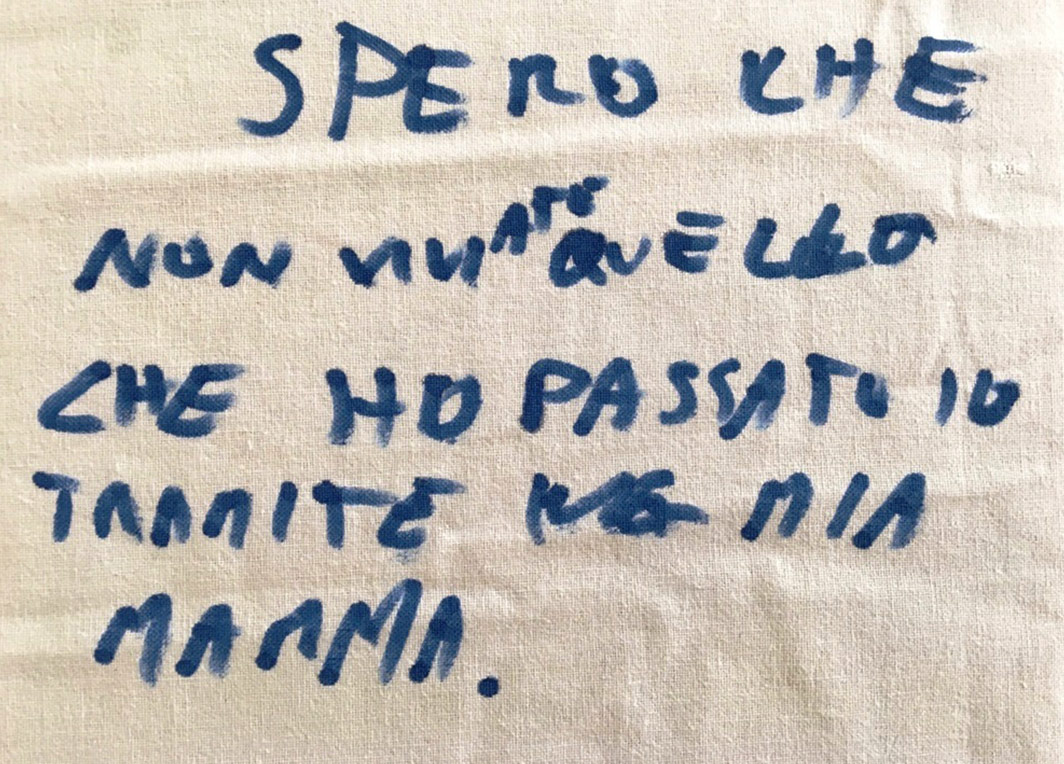 SPERO CHE
NON VIVIATE QUELLO
CHE HO PASSATO IO
TRAMITE MIA
MAMMA.